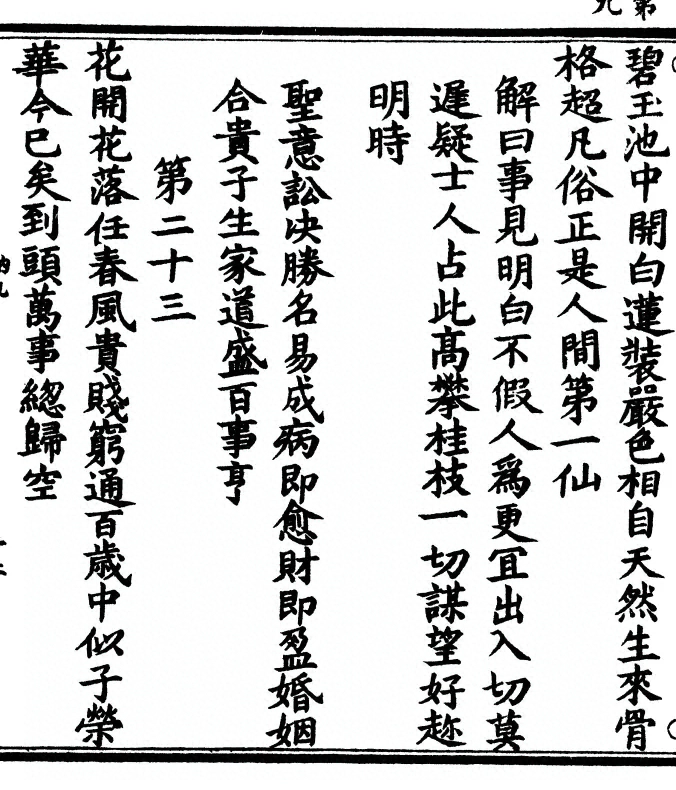 碧玉池中開白蓮裝嚴色相自天然生來骨
格超凡俗正是人間第一仙
解曰事見明白不假人爲更宜出入切莫
遲疑士人占此高攀桂枝一切謀望好趂
明時
聖意訟决勝名易成病即愈財即盈婚姻
合貴子生家道盛百事亨
第二十三
花開花落任春風貴賤窮通百歲中似子榮
華今已矣到頭萬事總歸空